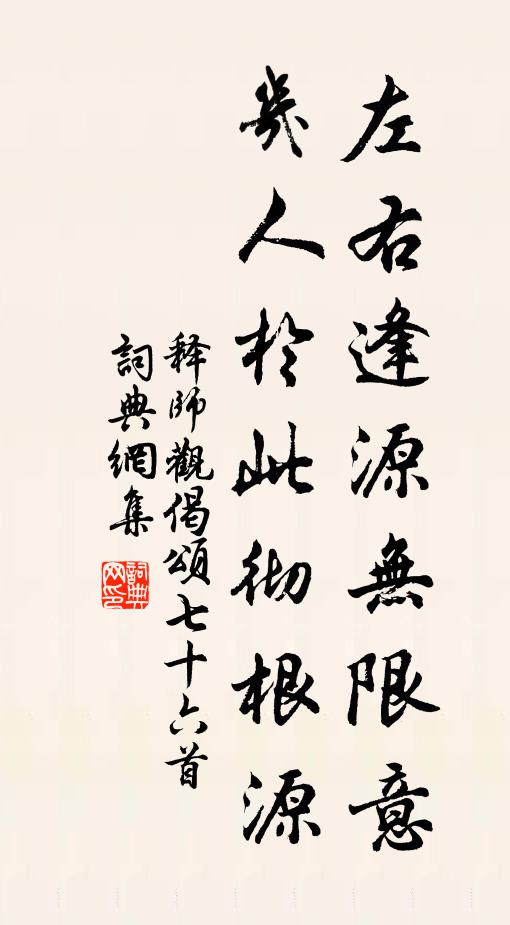 左右逢源無限意
幾人於此彻根源
释師觀偈頌七十六首
詞典網集
詞典网印